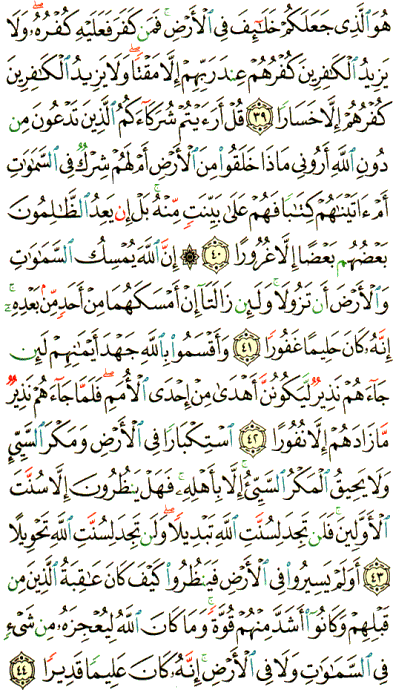 هُوَ ٱلَّذِى جَعَلَكُمْ خَلَٰٓئِفَ فِى ٱلْأَرْضِ ۚ فَمَن كَفَرَ فَعَلَيْهِ كُفْرُهُۥ ۖ وَلَا
يَزِيدُ ٱلْكَٰفِرِينَ كُفْرُهُمْ عِندَ رَبِّهِمْ إِلَّا مَقْتًا ۖ وَلَا يَزِيدُ ٱلْكَٰفِرِينَ
كُفْرُهُمْ إِلَّا خَسَارًا ﴿٣٩﴾ قُلْ أَرَءَيْتُمْ شُرَكَآءَكُمُ ٱلَّذِينَ تَدْعُونَ مِن
دُونِ ٱللَّهِ أَرُونِى مَاذَا خَلَقُوا۟ مِنَ ٱلْأَرْضِ أَمْ لَهُمْ شِرْكٌ فِى ٱلسَّمَٰوَٰتِ
أَمْ ءَاتَيْنَٰهُمْ كِتَٰبًا فَهُمْ عَلَىٰ بَيِّنَتٍ مِّنْهُ ۚ بَلْ إِن يَعِدُ ٱلظَّٰلِمُونَ
بَعْضُهُم بَعْضًا إِلَّا غُرُورًا ﴿٤٠﴾ ۞ إِنَّ ٱللَّهَ يُمْسِكُ ٱلسَّمَٰوَٰتِ
وَٱلْأَرْضَ أَن تَزُولَا ۚ وَلَئِن زَالَتَآ إِنْ أَمْسَكَهُمَا مِنْ أَحَدٍ مِّنۢ بَعْدِهِۦٓ ۚ
إِنَّهُۥ كَانَ حَلِيمًا غَفُورًا ﴿٤١﴾ وَأَقْسَمُوا۟ بِٱللَّهِ جَهْدَ أَيْمَٰنِهِمْ لَئِن
جَآءَهُمْ نَذِيرٌ لَّيَكُونُنَّ أَهْدَىٰ مِنْ إِحْدَى ٱلْأُمَمِ ۖ فَلَمَّا جَآءَهُمْ نَذِيرٌ
مَّا زَادَهُمْ إِلَّا نُفُورًا ﴿٤٢﴾ ٱسْتِكْبَارًا فِى ٱلْأَرْضِ وَمَكْرَ ٱلسَّيِّئِ ۚ
وَلَا يَحِيقُ ٱلْمَكْرُ ٱلسَّيِّئُ إِلَّا بِأَهْلِهِۦ ۚ فَهَلْ يَنظُرُونَ إِلَّا سُنَّتَ
ٱلْأَوَّلِينَ ۚ فَلَن تَجِدَ لِسُنَّتِ ٱللَّهِ تَبْدِيلًا ۖ وَلَن تَجِدَ لِسُنَّتِ ٱللَّهِ تَحْوِيلًا
﴿٤٣﴾ أَوَلَمْ يَسِيرُوا۟ فِى ٱلْأَرْضِ فَيَنظُرُوا۟ كَيْفَ كَانَ عَٰقِبَةُ ٱلَّذِينَ مِن
قَبْلِهِمْ وَكَانُوٓا۟ أَشَدَّ مِنْهُمْ قُوَّةً ۚ وَمَا كَانَ ٱللَّهُ لِيُعْجِزَهُۥ مِن شَىْءٍ
فِى ٱلسَّمَٰوَٰتِ وَلَا فِى ٱلْأَرْضِ ۚ إِنَّهُۥ كَانَ عَلِيمًا قَدِيرًا ﴿٤٤﴾